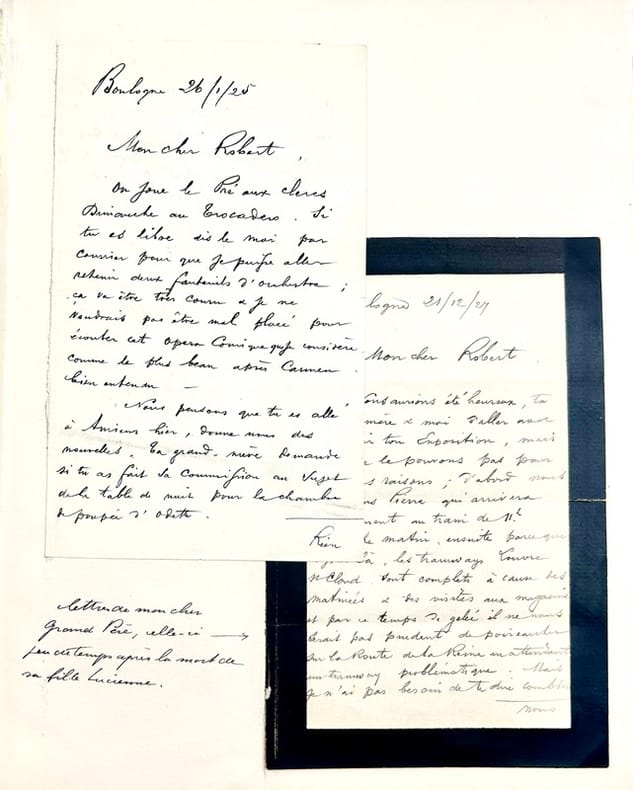 Boulogne 26/1/25
Mon cher Robert,
On joue le Pré aux clercs
Dimanche au Trocadero. Si
tu es libre dis le moi par
courrier pour que je puisse aller
retenir deux fauteuils d'orchestre ;
ça va être très couru & je ne
voudrais pas être mal placé pour
écouter cet opera Comique que je considère
comme le plus beau après Carmen
bien entendu —
Nous pensons que tu es allé
à Amiens hier, donne nous des
nouvelles. Ta grand-mère demande
si tu as fait sa Commission au sujet
de la table de nuit pour la chambre
de poupée d'Odette.
Rien
lettres de mon cher
Grand Père, celle-ci →
peu de temps après la mort de
sa fille Lucienne.
logne 21/12/27
Mon cher Robert
aurions été heureux, ta
mère & moi d'aller avec
ton Exposition, mais
le pouvons pas pour
raisons ; d'abord nous
Pierre qui arrivera
au train de 11h
le matin, ensuite parce que
les tramways Louvre
St Cloud sont complets à cause des
matinées & des visites aux magasins
et par ce temps de gelée il ne nous
serait pas prudent de poireauter
sur la Route de la Reine en attendant
un tramway problématique. Mais
je n'ai pas besoin de te dire combien
nous